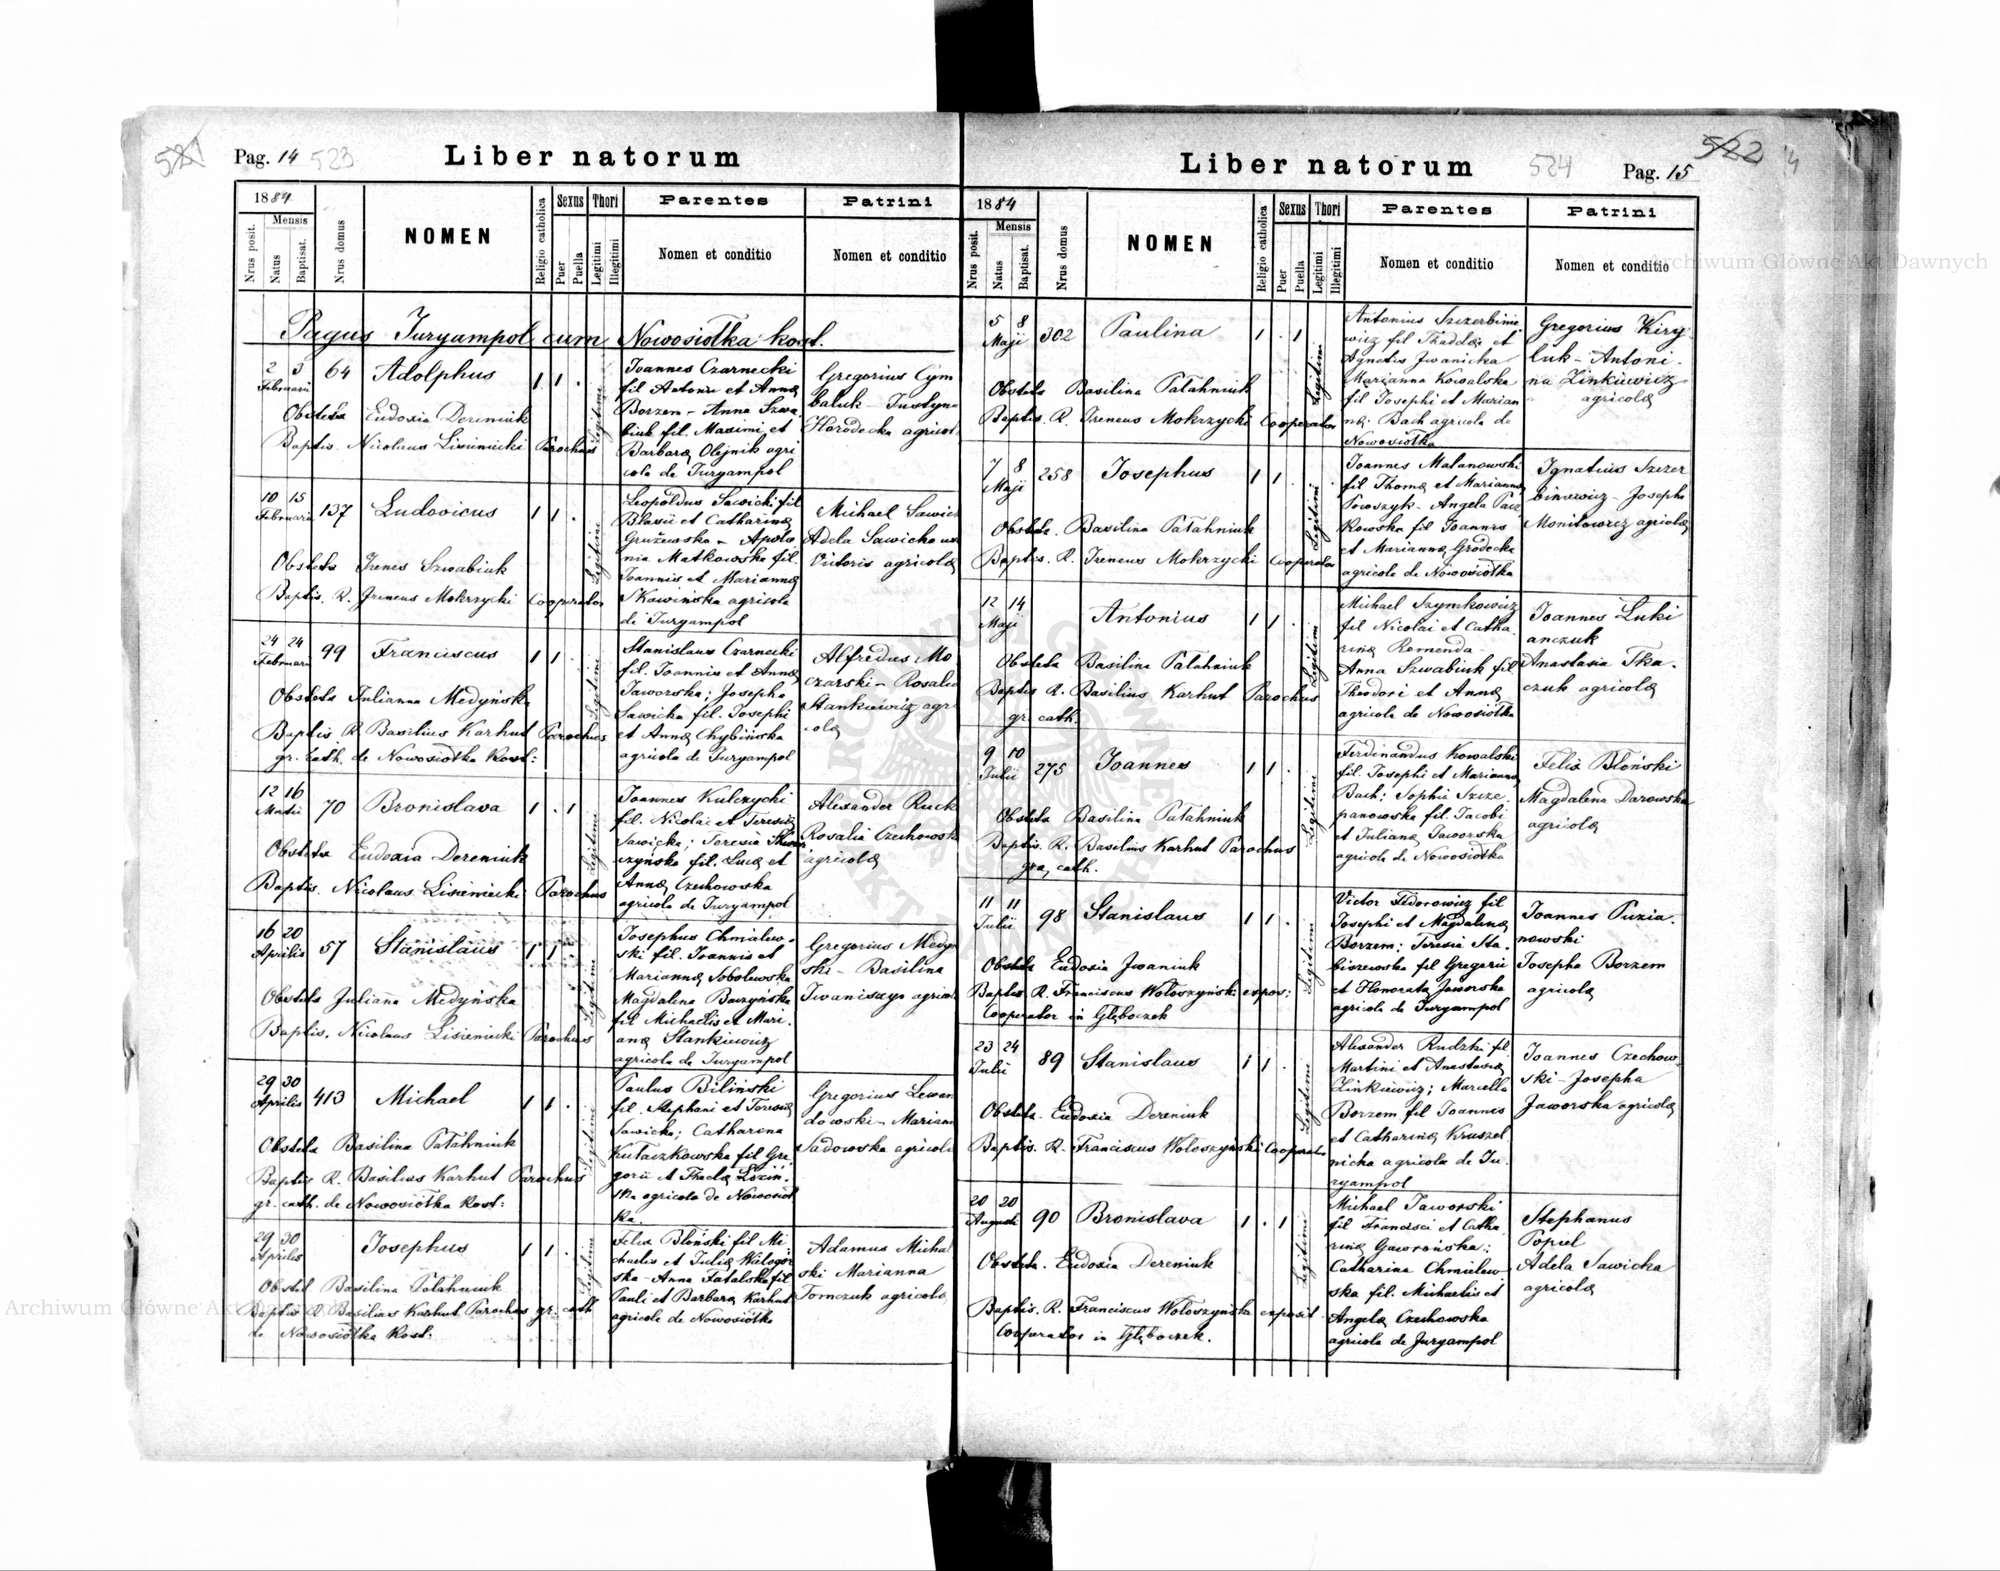 521
Pag. 14 523
Liber natorum
1884
Nrus posit.
Mensis
Natus
Baptisat.
Nrus domus
NOMEN
Religio catholica
Sexus
Puer
Puella
Thori
Legitimi
Illegitimi
Parentes
Nomen et conditio
Patrini
Nomen et conditio
Pagus Juryampol cum Nowosiołka kost.
2 3 Februarii 64 Adolphus 1 1 . Legitimi
Obstetx Eudoxia Dereniuk
Baptis. Nicolaus Lisieniecki Parochus
Joannes Czarnecki
fil Antonii et Annæ
Borzem - Anna Szwa
biuk fil. Maximi et
Barbaræ Olejnik agri
cola de Juryampol
Gregorius Cym
baluk - Justyna
Horodecka agricol
10 15 Februarii 137 Ludovicus 1 1 . Legitimi
Obsteta Irenes Szwabiuk
Baptis. R. Ireneus Mokrzycki Cooperator
Leopoldus Sawicki fil
Blasii et Catharinæ
Gružewska - Apolo
nia Matkowska fil.
Joannis et Mariannæ
Skawińska agricola
di Juryampol
Michael Sawic
Adela Sawicka
Victoris agricolæ
24 24 Februarii 99 Franciscus 1 1 . Legitimi
Obsteta Julianna Medyńska
Baptis R. Basilius Karhut Parochus
gr. cath. de Nowosiołka Kost:
Stanislaus Czarnecki
fil. Joannis et Annæ
Jaworska; Josepha
Sawicka fil. Josephi
et Annæ Chybińska
agricola de Juryampol
Alfredus Mo
czarski - Rosalia
Stankiewicz agri
colæ
12 16 Martii 70 Bronislava 1 . 1 Legitimi
Obsteta Eudoxia Dereniuk
Baptis. Nicolaus Lisieniecki Parochus
Joannes Kulczycki
fil. Nicolai et Teresiæ
Sawicka; Teresia
czyńska fil. Lucæ et
Annæ Czechowska
agricola de Juryampol
Alexander Ruck
Rosalia Czechowska
agricolæ
16 20 Aprilis 57 Stanislaus 1 1 . Legitimi
Obsteta Julianna Medyńska
Baptis. Nicolaus Lisieniecki Parochus
Josephus Chmielew-
ski fil. Joannis et
Mariannæ Sobolewska
Magdalena Buczyńska
fil Michaelis et Mari.
anæ Stankiewicz
agricola de Juryampol
Gregorius Medyń
ski - Basilina
Iwaniszyn agricol
29 30 Aprilis 413 Michael 1 1 . Legitimi
Obsteta Basilina Pałahniuk
Baptis R. Basilius Karhut Parochus
gr. cath. de Nowosiołka Kost:
Paulus Biliński
fil. Stephani et Teresiæ
Sawicka; Catharina
Kułaczkowska fil Gre
gorii et Theclæ
ska agricola de Nowosioł
ka.
Gregorius Lewan
dowski - Marianna
Sadowska agricolæ
29 30 Aprilis Josephus 1 1 . Legitimi
Obstet Basilina Pałahniuk
Baptis R. Basilius Karhut Parochus gr. cath
de Nowosiołka Kost:
Felix Błoński fil Mi
chaelis et Juliæ Wielogór
ska - Anna Fatalska fil
Pauli et Barbaræ Karhut
agricola de Nowosiołka
Adamus Michal
ski Marianna
Tomczuk agricolæ
Liber natorum
524
522
Pag. 15
1884
Nrus posit.
Mensis
Natus
Baptisat.
Nrus domus
NOMEN
Religio catholica
Sexus
Puer
Puella
Thori
Legitimi
Illegitimi
Parentes
Nomen et conditio
Patrini
Nomen et conditio
5 8 Maji 302 Paulina 1 . 1 Legitimi
Obsteta Basilina Pałahniuk
Baptis. R. Ireneus Mokrzycki Cooperator
Antonius Szczerbinie
wicz fil Thaddæi et
Agnetis Iwanicka
Marianna Kowalska
fil Josephi et Marian
næ Bach agricola de
Nowosiołka
Gregorius Kiry
luk - Antoni
na Zinkiewicz
agricolæ
7 8 Maji 258 Josephus 1 1 Legitimi
Obsteta. Basilina Pałahniuk
Baptis. R. Ireneus Mokrzycki Cooperator
Joannes Malanowski
fil Thomæ et Mariannæ
Powszyk - Angela Pacz
kowska fil Joannis
et Mariannæ Grodecka
agricola de Nowosiołka
Ignatius Szczer
biniewicz - Josepha
Monitowicz agricolæ
12 14 Maji Antonius 1 1 . Legitimi
Obsteta Basilina Pałahniuk
Baptis R. Basilius Karhut Parochus
gr. cath.
Michael Szymkowicz
fil Nicolai et Catha
rinæ Remenda -
Anna Szwabiuk fil
Theodori et Annæ
agricola de Nowosiołka
Joannes Luki
anczuk
Anastasia Tka.
czuk agricolæ
9 10 Julii 275 Joannes 1 1 . Legitimi
Obsteta Basilina Pałahniuk
Baptis. R. Basilius Karhut Parochus
gr. cath.
Ferdinandus Kowalski
fil. Josephi et Mariannæ
Bach; Sophia Szcze
panowska fil. Jacobi
et Julianæ Jaworska
agricola de Nowosiołka
Felix Błoński
Magdalena Darowska
agricolæ
11 11 Julii 98 Stanislaus 1 1 . Legitimi
Obsteta Eudoxia Iwaniuk
Baptis R. Franciscus Wołoszyński expos:
Cooperator in Głęboczek
Victor Fedorowicz fil
Josephi et Magdalenæ
Borzem; Teresia Sta.
biszewska fil Gregorii
et Honoratæ Jaworska
agricola de Juryampol
Joannes Puzia.
nowski
Josepha Borzem
agricolæ
23 24 Julii 89 Stanislaus 1 1 . Legitimi
Obsteta. Eudoxia Dereniuk
Baptis. R. Franciscus Wołoszyński Cooperator
Alexander Rudzki fil
Martini et Anastasiæ
Zinkiewicz; Marcella
Borzem fil Joannis
et Catharinæ Kruszel
nicka agricola de Ju.
ryampol
Joannes Czechow-
ski - Josepha
Jaworska agricolæ
20 20 Augusti 90 Bronislava 1 . 1 Legitimi
Obsteta. Eudoxia Dereniuk
Baptis. R. Franciscus Wołoszyński exposit
Cooperator in Głęboczek.
Michael Jaworski
fil Francisci et Catha
rinæ Gaworońska;
Catharina Chmielew
ska fil. Michaelis et
Angelæ Czechowska
agricola de Juryampol
Stephanus
Popiel
Adela Sawicka
agricolæ
Archiwum Główne Akt Dawnych
Archiwum Główne Akt Dawnych